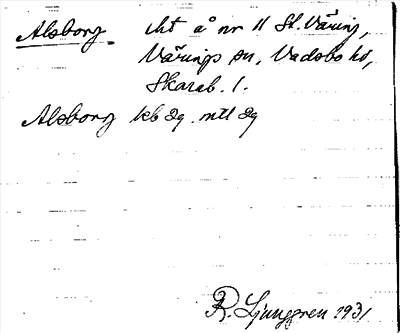 Alsborg. lht å nr 11 St. Väring,
Värings sn, Vadsbo hd,
Skarab. l.
Alsborg kb 29. mtl 29
R. Ljunggren 1931